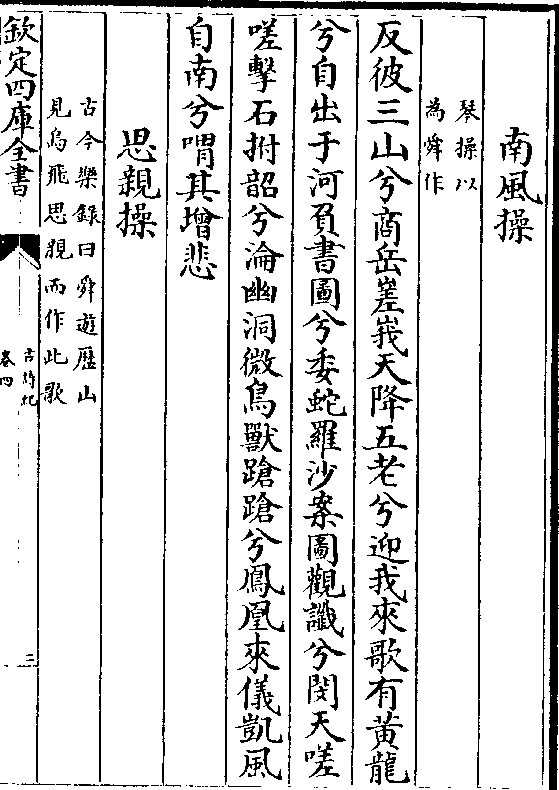 南風操
琴操以
為舜作
反彼三山兮商岳嵳峩天降五老兮迎我來歌有黄龍
兮自出于河負書圖兮委蛇羅沙案圖觀讖兮閔天嗟
嗟擊石拊韶兮淪幽洞微鳥獸蹌蹌兮鳳凰來儀凱風
自南兮喟其增悲
思親操
古今樂録曰舜遊歴山
見烏飛思親而作此歌
欽定四庫全書
古詩紀
卷四
三